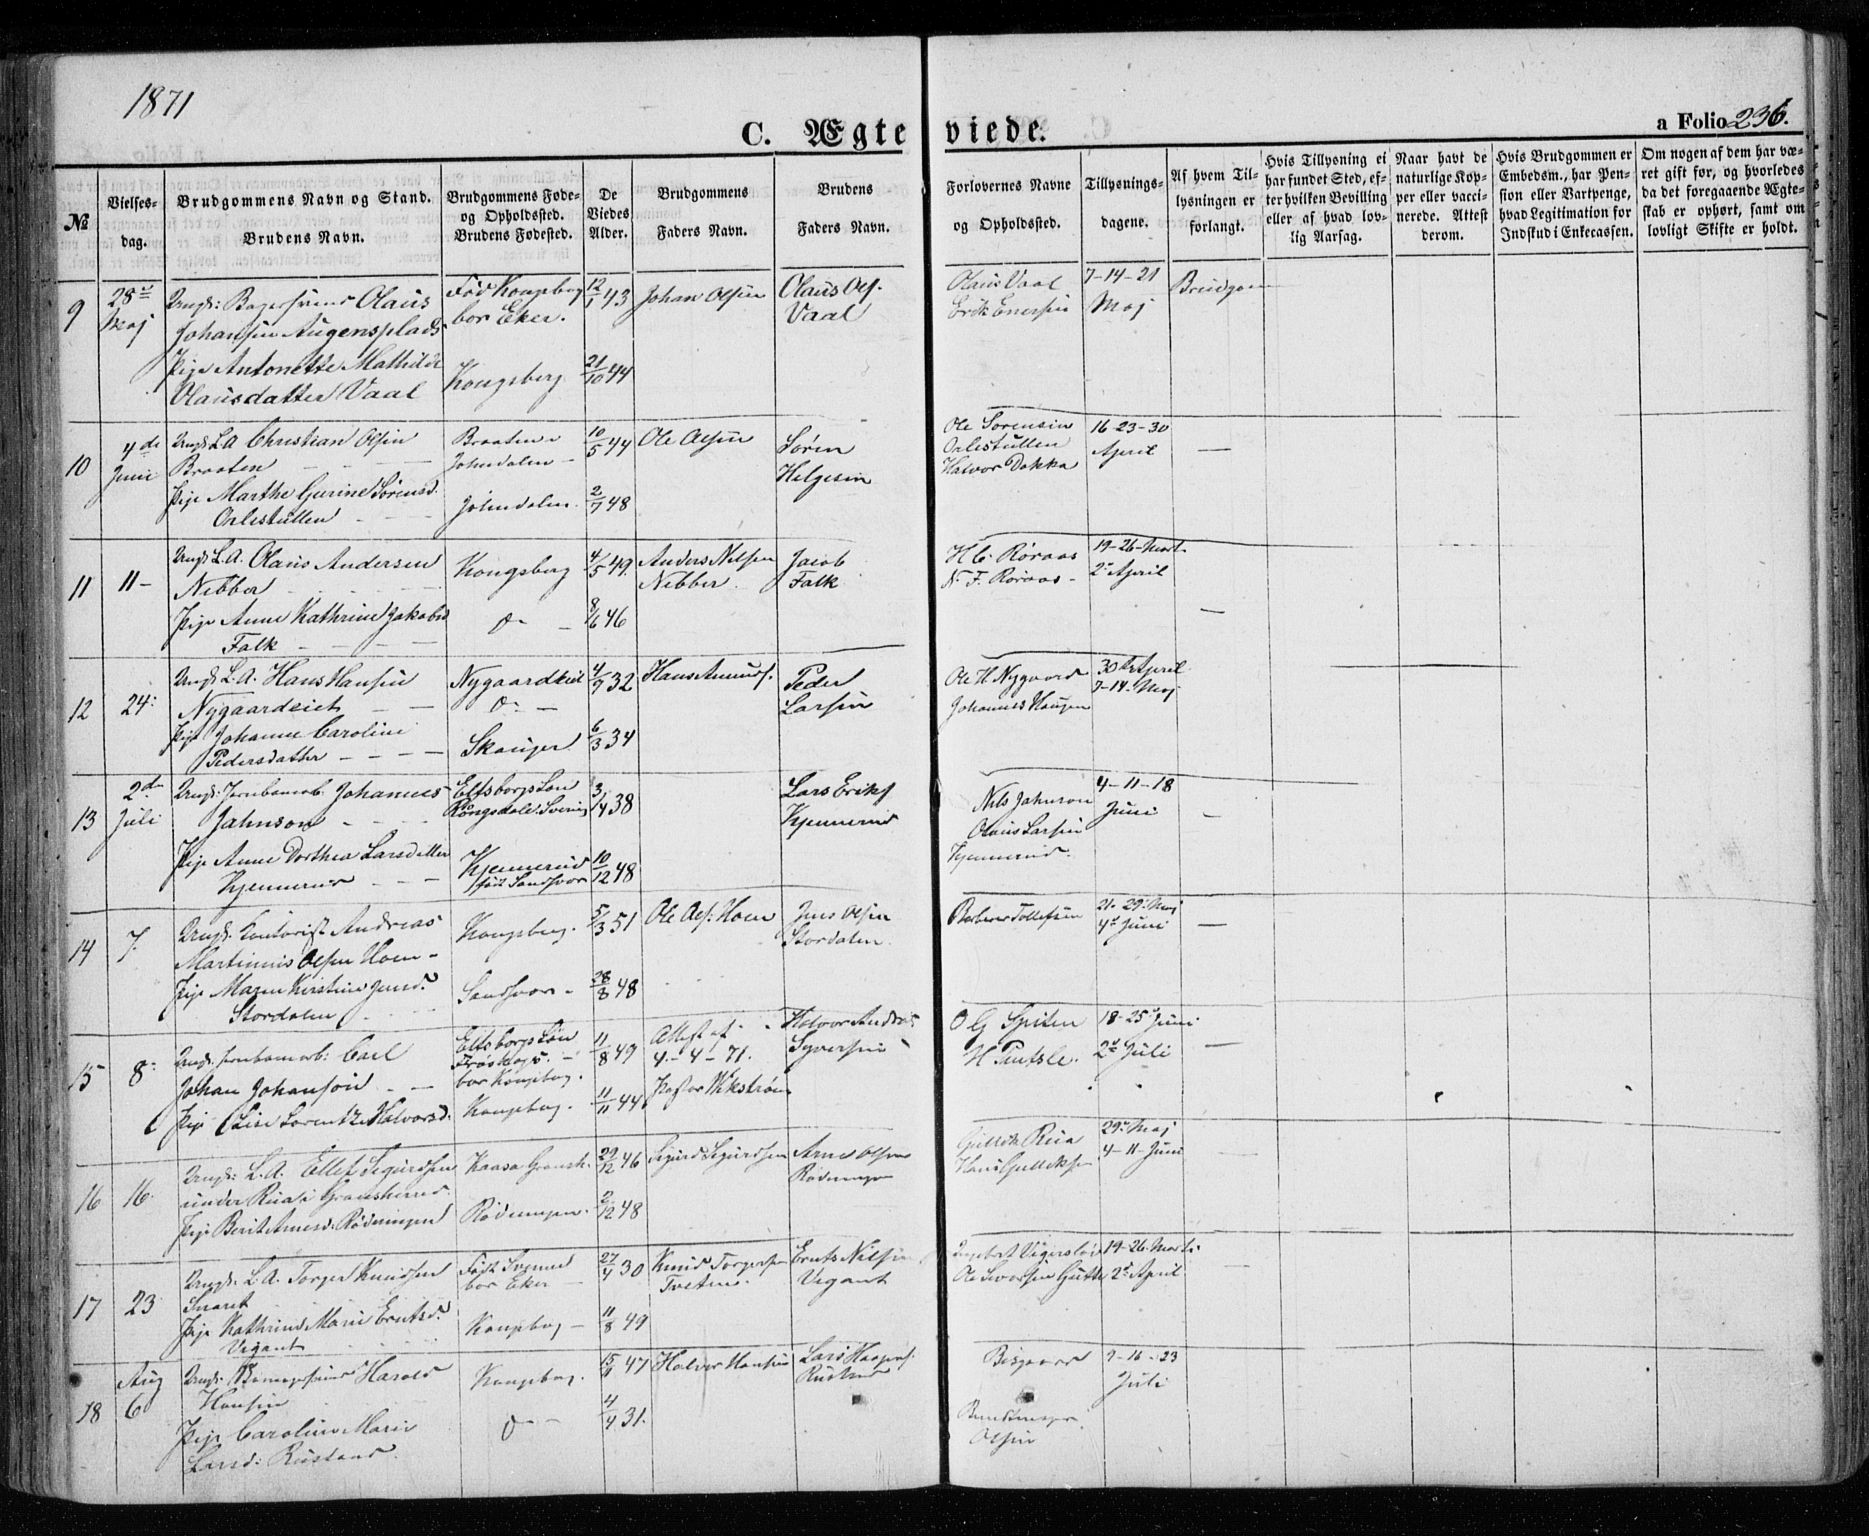 1871
C. Ægteviede.
a Folio 236.
№
Vielses-
dag.
Brudgommens Navn og Stand.
Brudens Navn.
Brudgommens Føde-
og Opholdssted.
Brudens Fødested.
De
Viedes
Alder.
Brudgommens
Faders Navn.
Brudens
Faders Navn.
Forlovernes Navne
og Opholdssted.
Tillysnings-
dagene.
Af hvem Til-
lysningen er
forlangt.
Hvis Tillysning ei
har fundet Sted, ef-
ter hvilken Bevilling
eller af hvad lov-
lig Aarsag.
Naar havt de
naturlige Kop-
per eller vacci-
nerede. Attest
derom.
Hvis Brudgommen er
Embedsm., har Pen-
sion eller Vartpenge,
hvad Legitimation for
Indskud i Enkecassen.
Om nogen af dem har væ-
ret gift før, og hvorledes
da det foregaaende Ægte-
skab er ophørt, samt om
lovligt Skifte er holdt.
9
28de
Maj
Ungk: Bagersvend Olaus
Johansen Augensplads
Pige Antonette Mathilde
Olausdatter Vaal
Född Kongsberg
bor Eker.
Kongsberg
12/1 43
21/10 44
Johan Olsen
Olaus Ols.
Vaal
Olaus Vaal
Erik Enersen
7-14-21
Maj
Brudgom
10
4de
Juni
Ungk. L.A. Christian Olsen
Braaten
Pige Marthe Gurine Sørensd.
Orlestullen
Braaten
Johndalen
Johndalen.
10/5 44
2/7 48
Ole Olsen
Søren
Helgesen
Ole Sørensen
Orlestullen
Halvor Dokka
16-23-30
April
—
11
11-
Ungk. L.A. Olaus Andersen
Nebber
Pige Anne Kathrine Jakobsd
Falk
Kongsberg
do
4/5 49.
8/6 46
Anders Nilsen
Nebber.
Jacob
Falk
H C. Røraas
N. F. Røraas
19-26-Mart.
2 April
—
12
24:
Ungk. L.A. Hans Hansen
Nygaardeiet
Pige Johanne Caroline
Pedersdatter
Nygaardeiet
do
Skouger
4/9 32
6/3 34
Hans Amunds.
Peder
Larsen
Ole H Nygaard
Johannes Haugen
30 April
7-14. Maj
13
2de
Juli
Ungk: Jernbanearb. Johannes
Jahnson
Pige Anne Dorthea Larsdatter
Kjennerud
Elfsborgs Län
Kjennerud
født Sandsvær
3/4 38
10/12 48
Lars Eriks
Kjennerud
Nils Jahnson
Olaus Larsen
Kjennerud.
4-11-18
Juni
—
14
7.
Ungk. Kontorist Andreas
Martinius Olsen Hoen
Pige Maren Kirstine Jensd.
Stordalen
Kongsberg.
Sandsvær
5/3 51
28/8 48
Ole Ols. Hoen
Jens Olsen
Stordalen
Tollefsen
21-29 Maj
4de Juni
—
15
8:
Ungk. Jernbanearb: Carl
Johan Johanson
Pige Lise Lorentze Halvorsd.
Elfsborgs Län
bor Kongsberg.
Kongsberg.
11/8 49
11/11 44
Attest af
4-4-71.
Pastor Wikström
Halvor Andreas
Syversen
O G Spiten
H Pentzle.
18-25 Juni
2de Juli
—
16
16.
Ungk: L.A. Ellef Sigurdsen
under Rua i Gransherred
Pige Berit Arnesd. Rødningen
Kaasa Gransh.
Rødningen.
29/12 46
2/12 48
Sigurd Sigurdsen
Arne Olsen
Rødningen
Gullik Rua
Hans Gulliksen
29 Maj
4-11-Juni
—
17
23
Ungk. L.A. Torger Knudsen
Snaret
Pige Kathrine Marie Erntsd.
Vigant
Født
bor Eker
Kongsberg
27/4 30
11/8 49
Knud Torgersen
Tvetene.
Ernts Nilsen
Vigant
Ingebret
Ole
19-26. Marts.
2de April
—
Aug
18
6
Ungk. Harald
Hansen
Pige Caroline Marie
Larsd: Rustand.
Kongsberg.
do
15/ 47
4/4 31.
Halvor Hansen
Lars Haagens.
Rustand
Bisgaard
Olsen
9-16-23
Juli